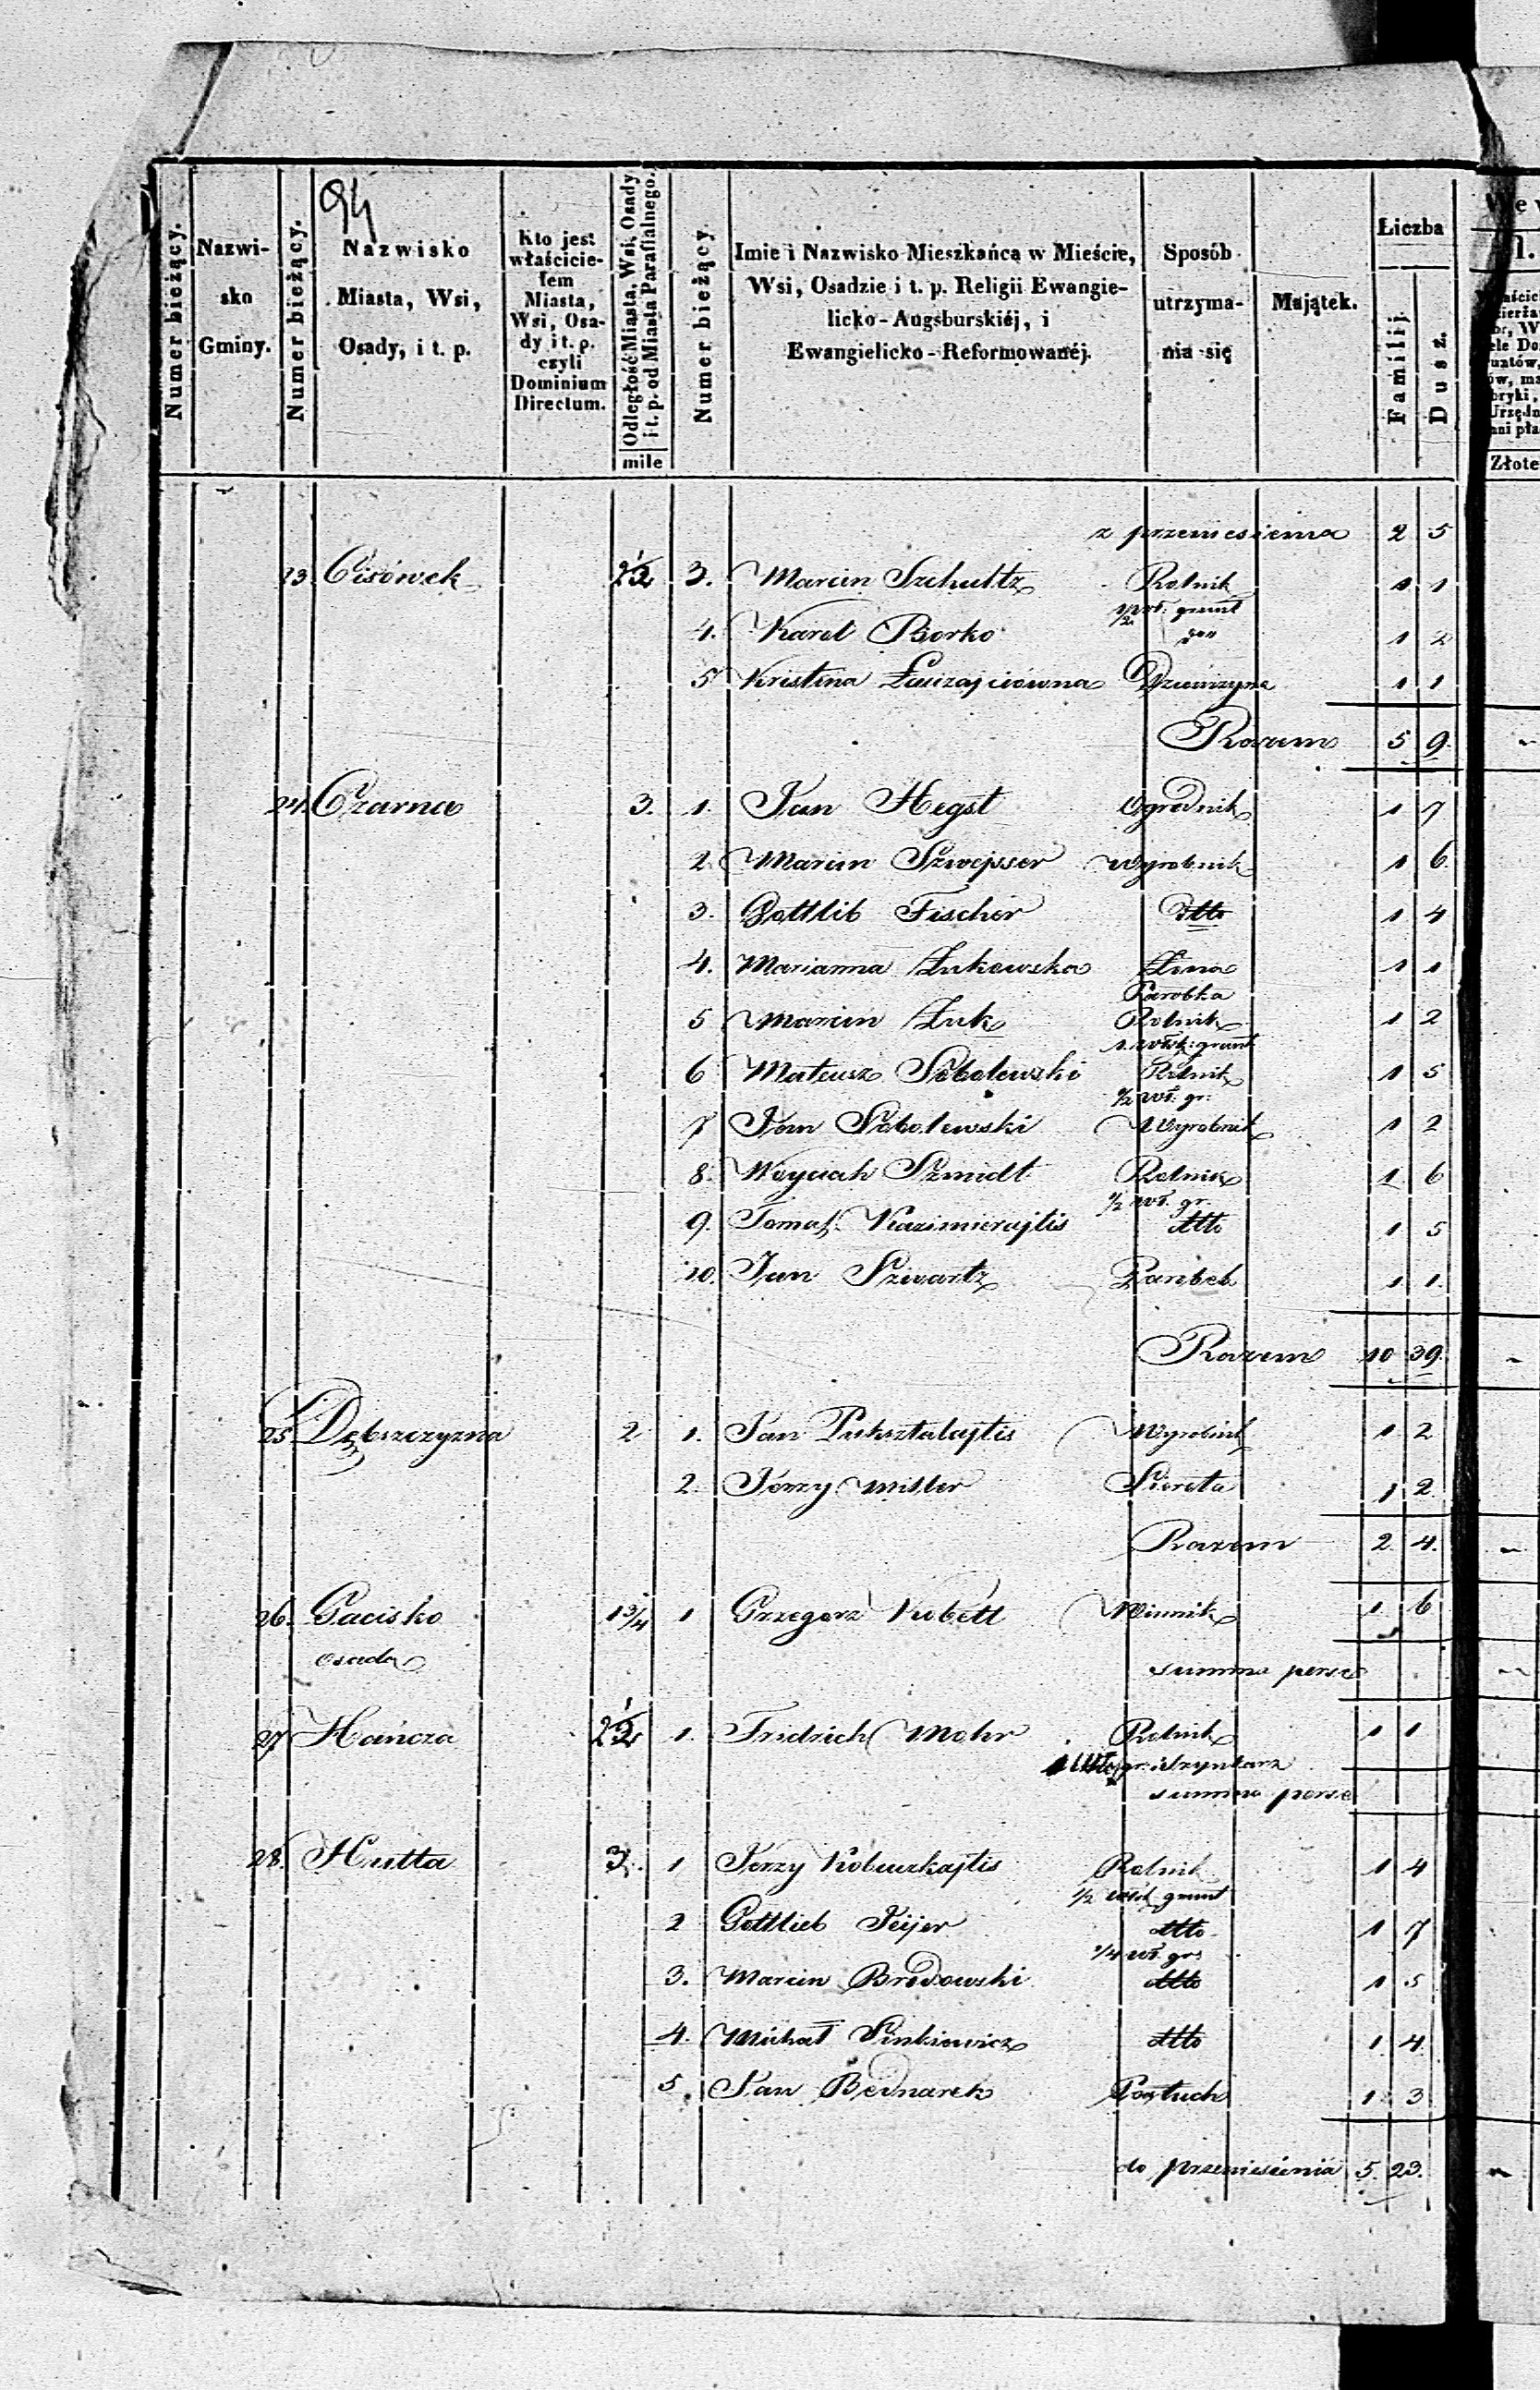 94
Numer bieżący.
Nazwisko Gminy.
Numer bieżący.
Nazwisko Miasta, Wsi, Osady, i t. p.
Kto jest właścicielem Miasta, Wsi, Osady i t. p. czyli Dominium Directum.
Odległość Miasta, Wsi, Osady i t. p. od Miasta Parafialnego.
mile
Numer bieżący.
Imie i Nazwisko Mieszkańca w Mieście, Wsi, Osadzie i t. p. Religii Ewangielicko-Augsburskiéj, i Ewangielicko-Reformowanéj.
Sposób utrzymania się
Majątek.
Liczba
Familij.
Dusz.
Złote
z przeniesienia 2 5
23. Cisówek 2 1/2 3. Marcin Szchultz Rolnik 1 1
1/2 wł. grunt
4. Karol Borko 1 2
5 Kristina 1 1
Razem 5 9.
24. Czarna 3. 1. Jan Hegst Ogrodnik 1 7
2. Marcin Szwejsser Wyrobnik 1 6.
3. Gottlib Fischer dtto 1 4
4. Marianna Żukowska Żona 1 1
Parobka
5 Marcin Żuk Rolnik 1 2
1. włók: grunt
6 Mateusz Sobolewski Rolnik 1 5
1/2 wł. gr:
7 Jan Sobolewski Wyrobnik 1 2
8. Woyciech Szmidt Rolnik 1 6
1/2 wł. gr.
9. Tomasz Kazimierajtis dtto 1 5
10. Jan Szwartz Parobek 1 1.
Razem 10 39.
25. Dębszczyzna 2 1. Jan Pukształajtis Wyrobnik 1 2
2. Jerzy Miller Sierota 1 2
Razem 2. 4.
26. Gacisko 1 3/4 1 Grzegorz Kobett Winnik 1. 6
osada
summa perse
27 Hańcza 2 1/2 1. Fridrich Mohr Rolnik 1 1
1 włók gr. i Szynkarz
summa perse
28. Hutta 3. 1 Jerzy Rolnik 1 4
1/2 włók grunt
2 Gottlieb Pejer dtto 1 7
1/4 wł. gr:
3. Marcin Brodowski dtto 1 5
4. Michał Sinkiewicz dtto 1. 4.
5. Jan Bednarek Pastuch 1. 3
do przeniesienia 5. 23.